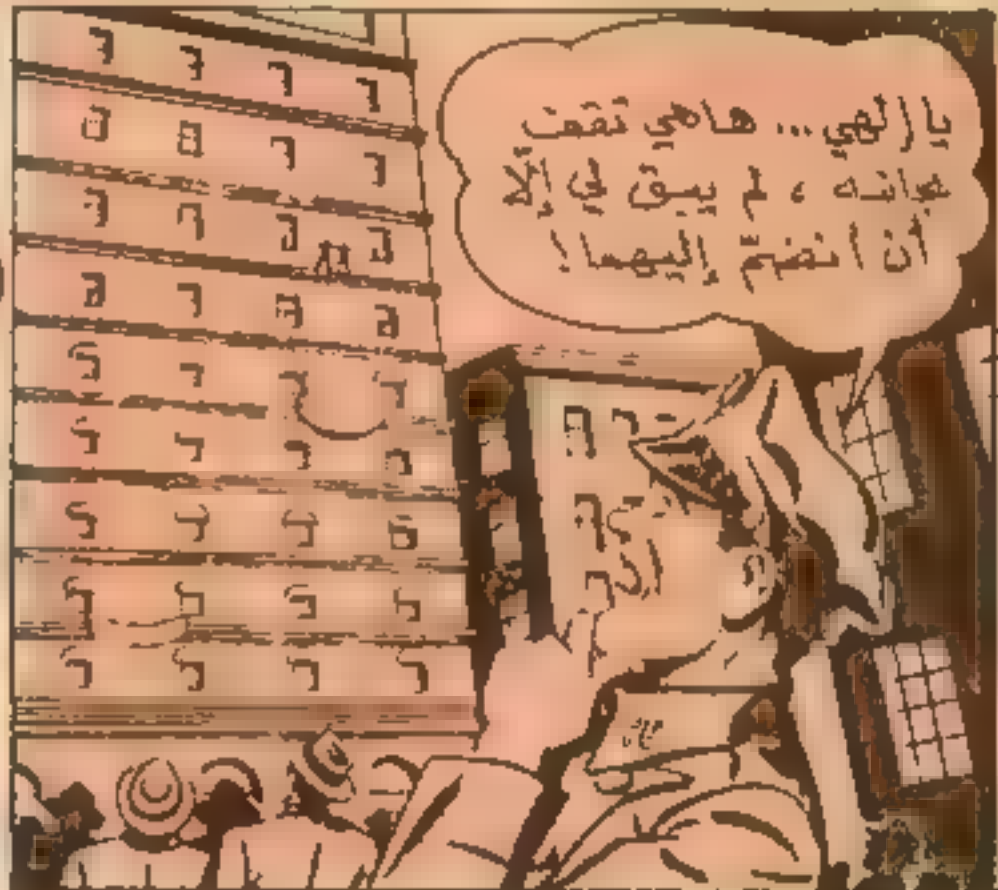 يا إلهي... هاهي تقفت
، لم يبق لي إلّا
أن أنضمّ إليهما!